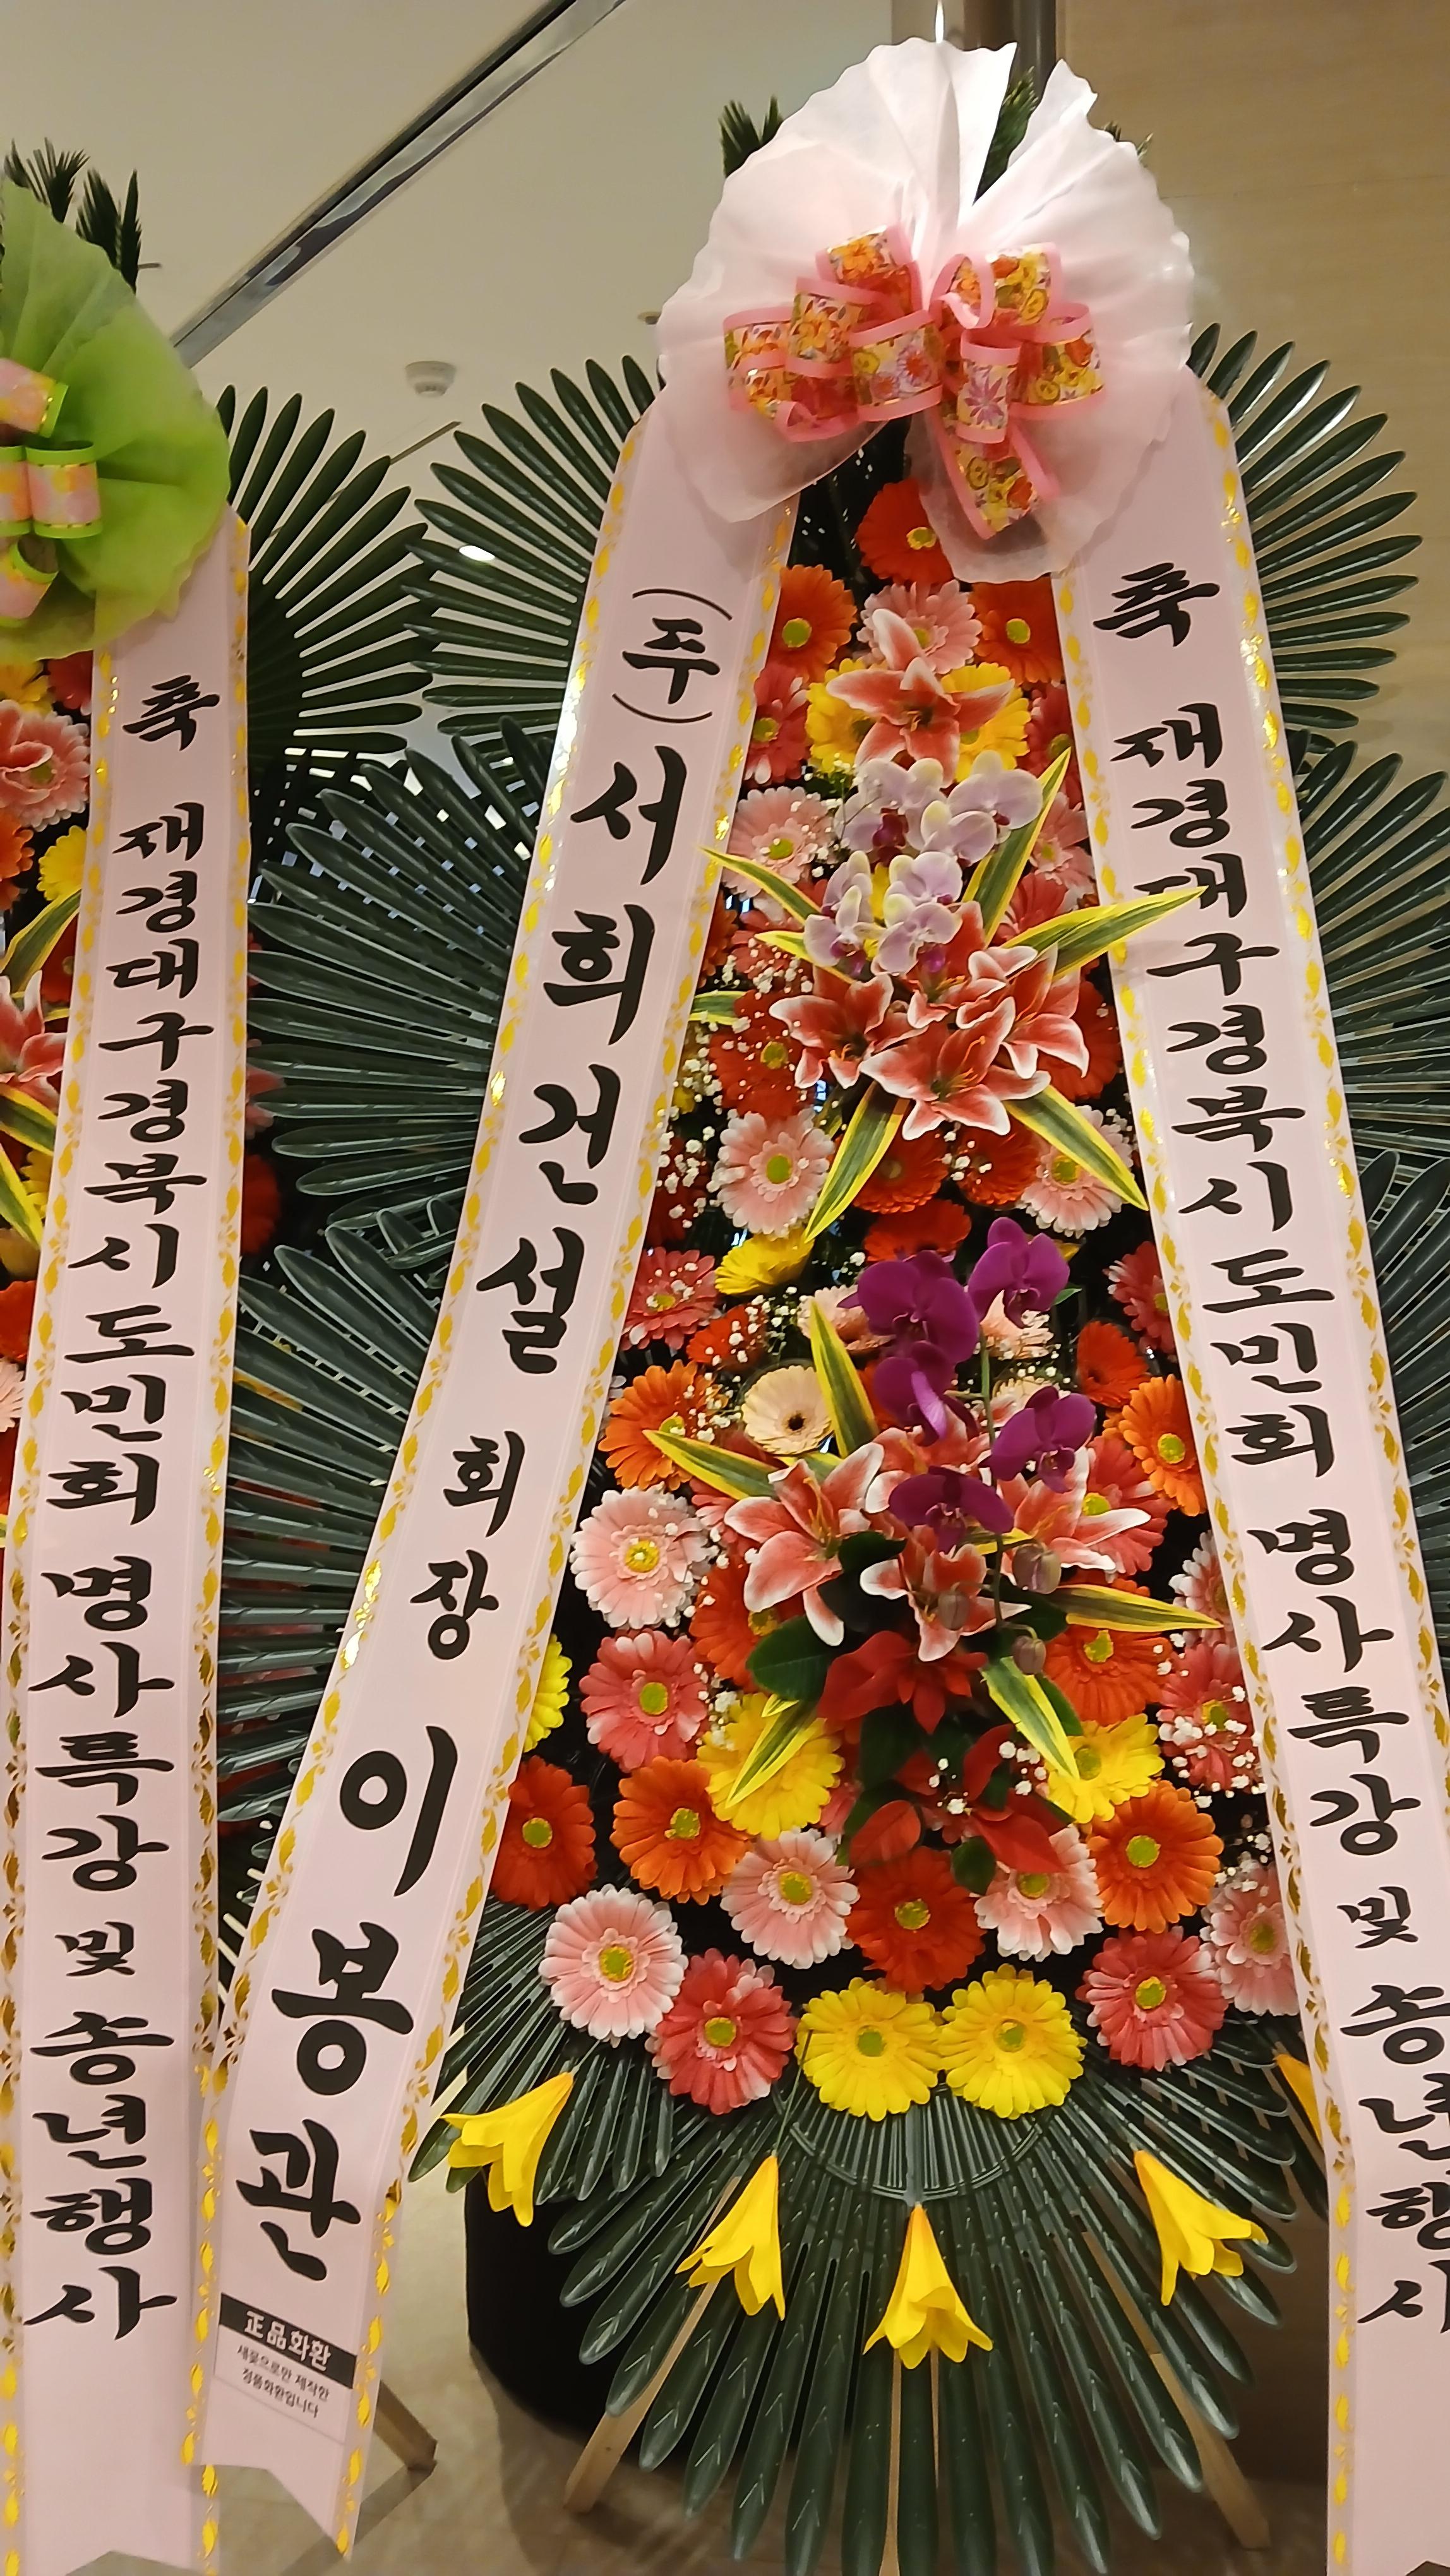 축 재경대구경북시도민회 명사특강 및 송년행사
(주)서희건설 회장 이봉관
正品화환
새꽃으로만 제작한
정품화환입니다
축 재경대구경북시도민회 명사특강 및 송년행사